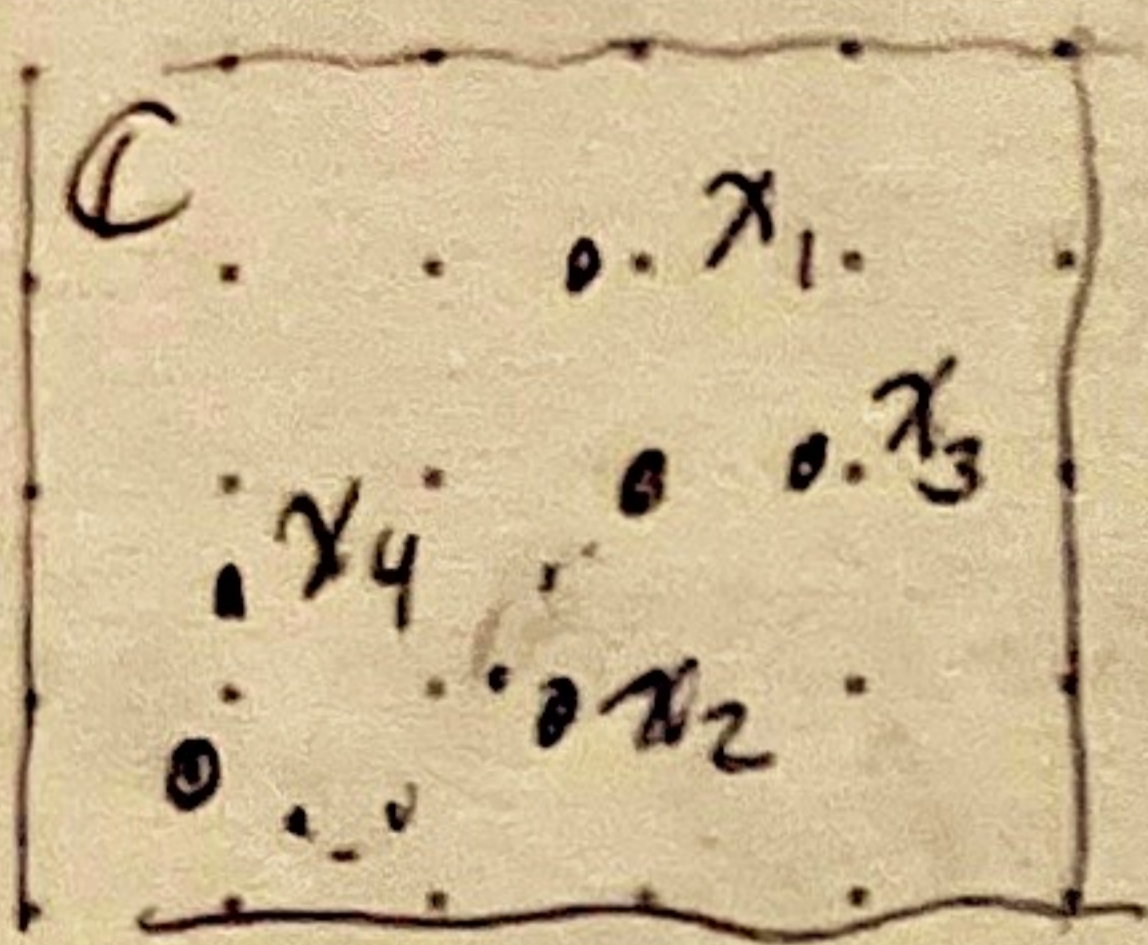 ℂ
x₁
x₃
x₄
x₂